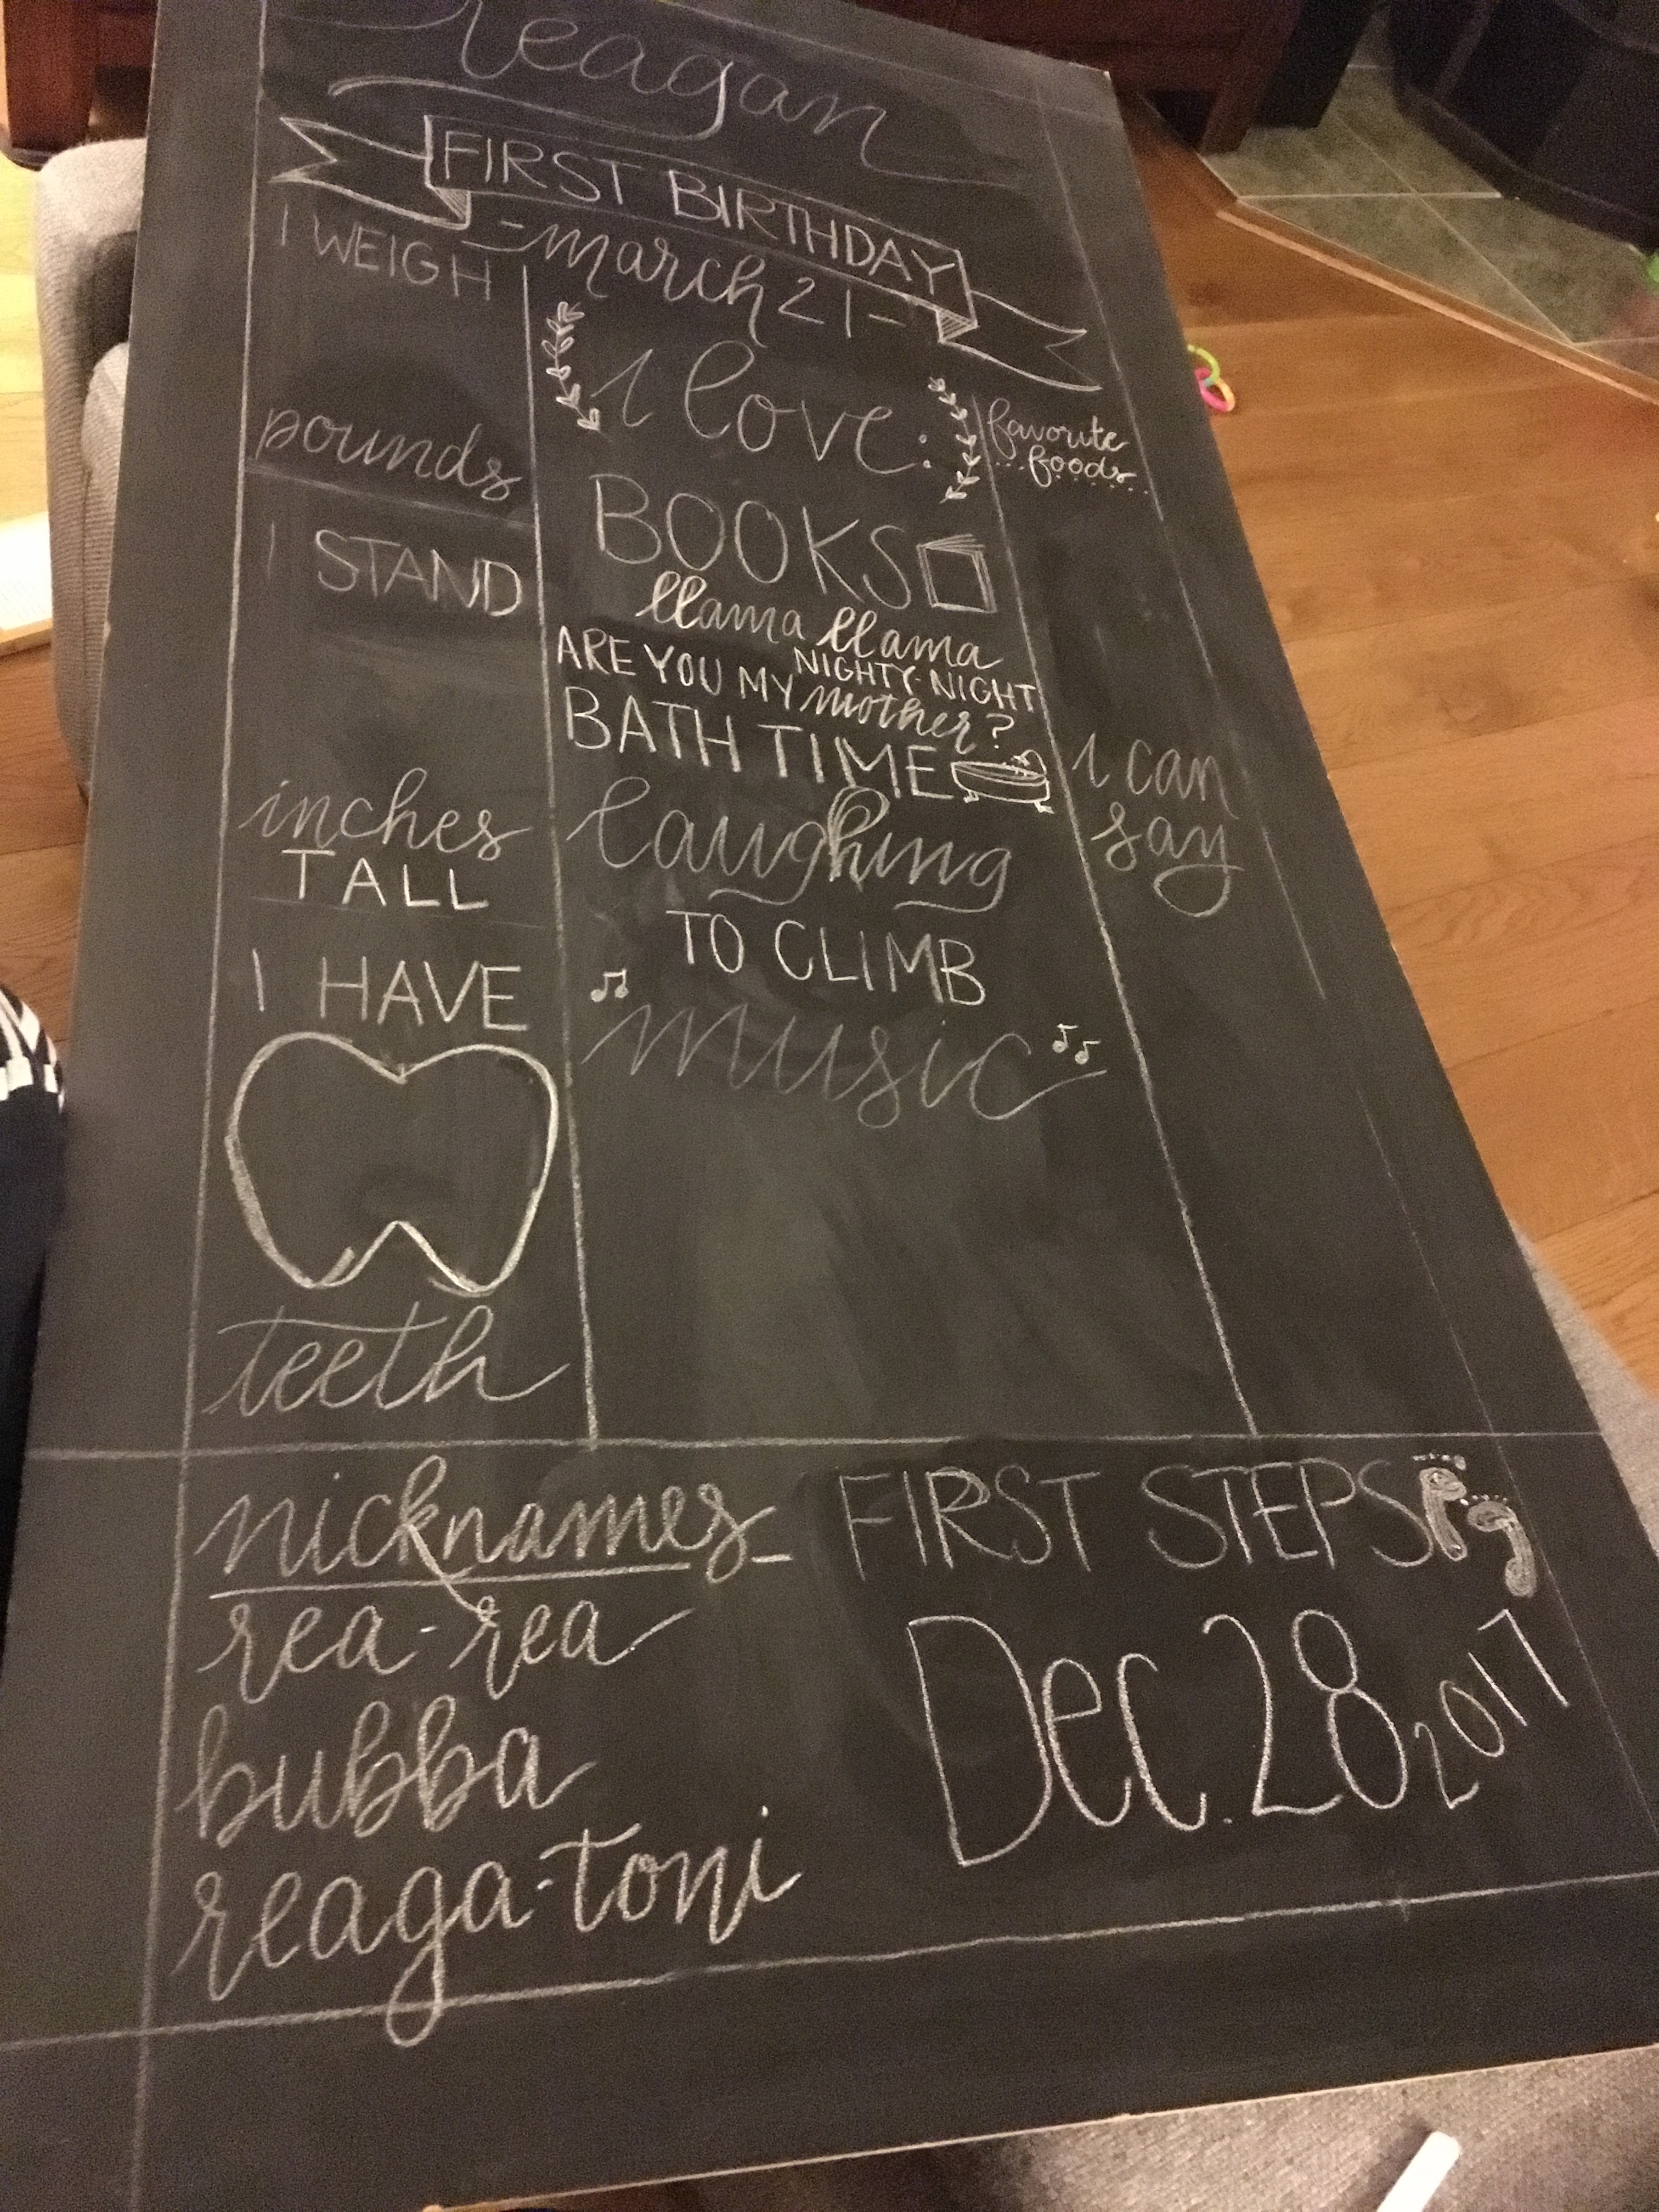 reagan
FIRST BIRTHDAY
-march 21-
I WEIGH
pounds
I STAND
inches
TALL
I HAVE
teeth
i love:
BOOKS
llama llama
NIGHTY-NIGHT
ARE YOU MY mother?
BATH TIME
laughing
TO CLIMB
music
favorite
foods
i can
say
nicknames
rea-rea
bubba
reaga-toni
FIRST STEPS
Dec. 28 2017